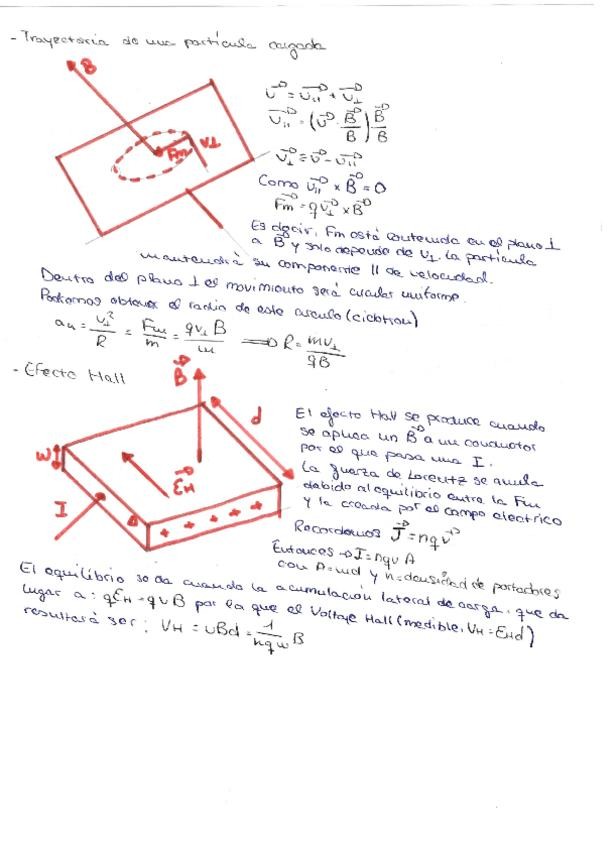 - Trayectoria de una partícula cargada
B
Fm
V⊥
v⃗ = v⃗∥ + v⃗⊥
v⃗∥ = (v⃗ · B⃗/B) B⃗/B
v⃗⊥ = v⃗ - v⃗∥
Como v⃗∥ × B⃗ = 0
F⃗m = q v⃗⊥ × B⃗
Es decir, Fm está contenida en el plano ⊥
a B⃗ y solo depende de v⊥. La partícula
mantendrá su componente || de velocidad.
Dentro del plano ⊥ el movimiento será circular uniforme.
Podramos obtener el radio de este círculo (ciclotron)
an = v⊥²/R = Fm/m = qv⊥B/m ⟹ R = mv⊥/qB
- Efecto Hall
B⃗
d
w
I
ε⃗H
+ + + + +
El efecto Hall se produce cuando
se aplica un B⃗ a un conductor
por el que pasa una I.
La fuerza de Lorentz se anula
debido al equilibrio entre la Fm
y la creada por el campo electrico
Recordemos J⃗ = nqv⃗
Entonces → I = nqvA
con A = wd y n = densidad de portadores
El equilibrio se da cuando la acumulación lateral de carga, que da
lugar a: qεH = qvB por la que el Voltaje Hall (medible, VH = εHd)
resultará ser: VH = vBd = 1/nqw B